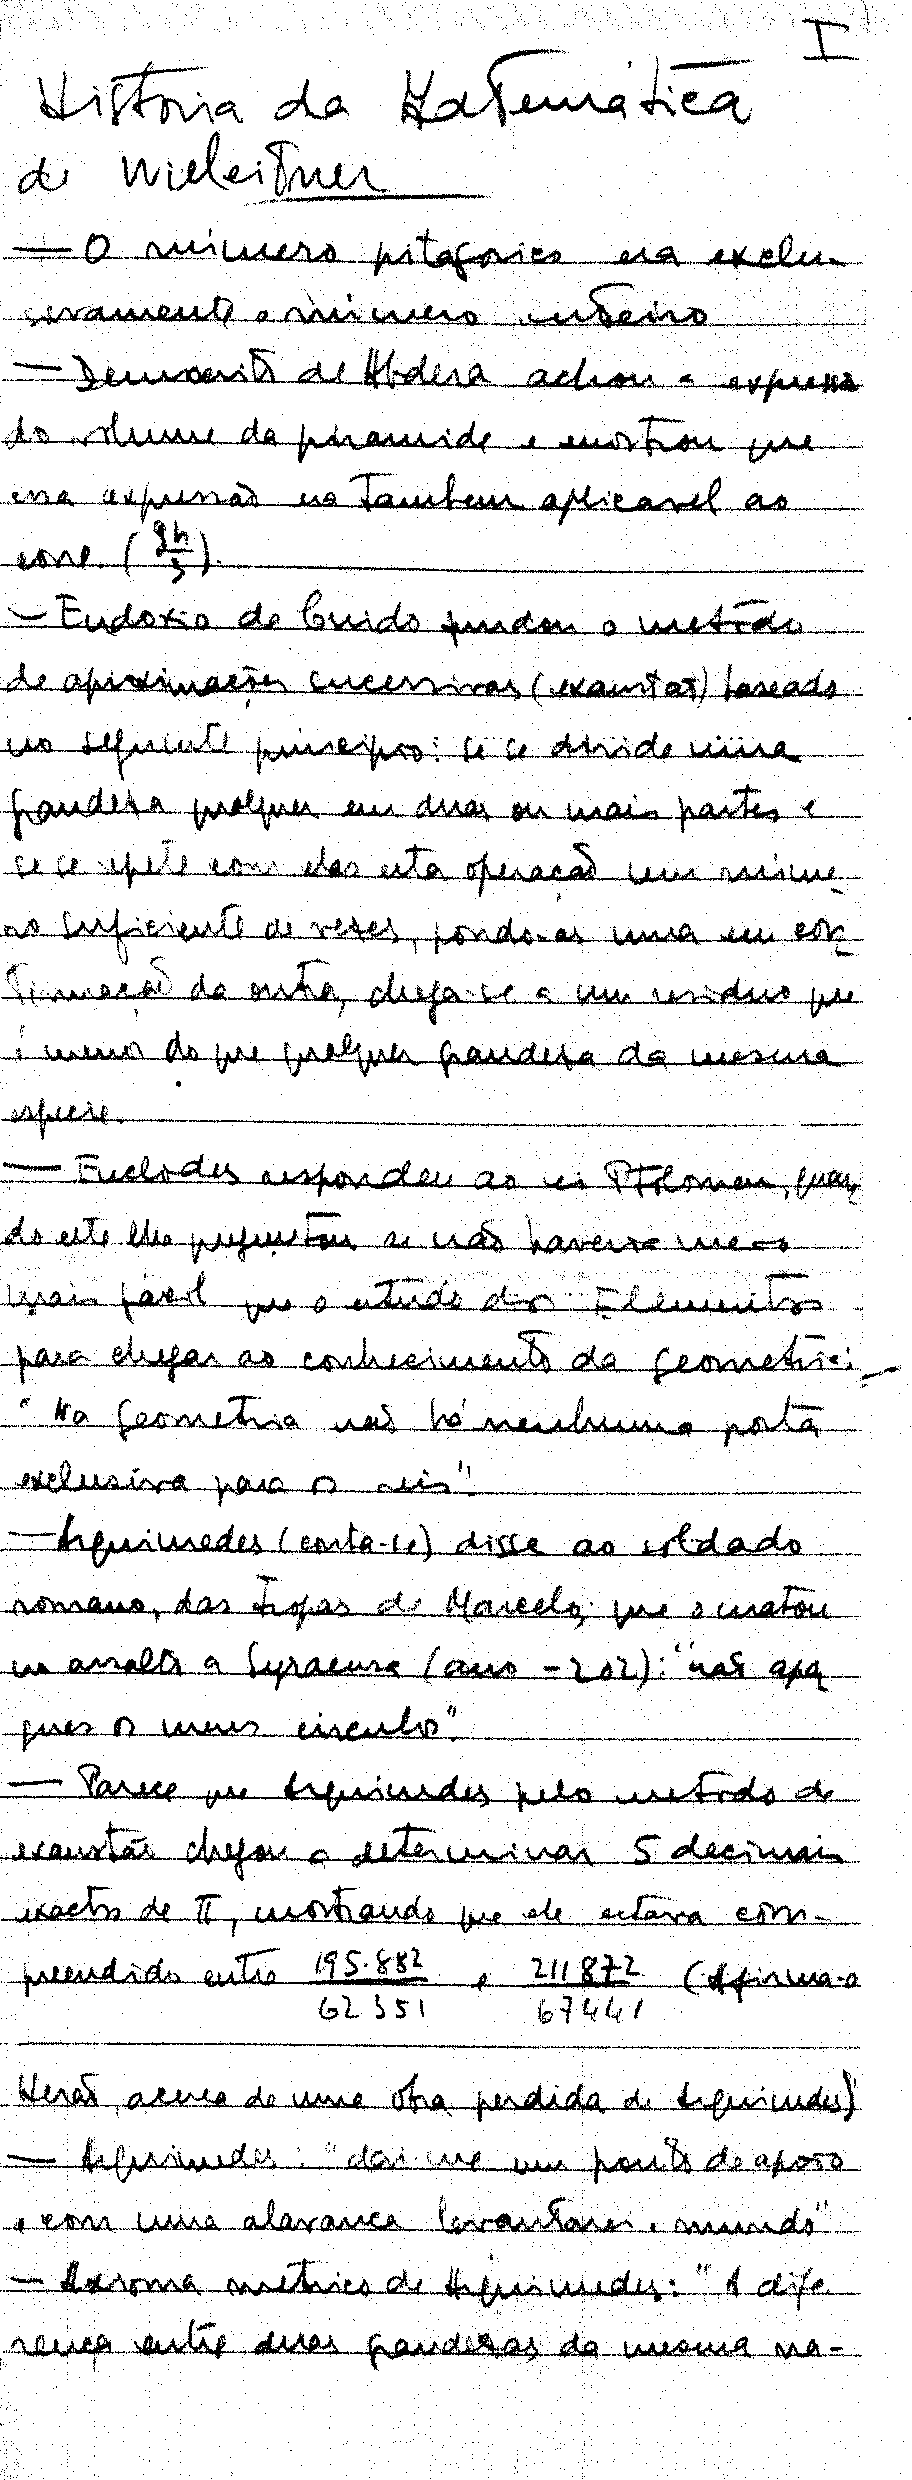 I
História da Matemática
de Wieleitner
— O número pitagorico era exclu-
sivamente o número inteiro
— Democrito de Abdera achou a expressão
do volume da piramide e mostrou que
essa expressão era tambem aplicavel ao
cone. (gh/3).
— Eudoxio de Cnido fundou o metodo
de aproximações sucessivas (exaustão) baseado
no seguinte principio: se se divide uma
grandeza qualquer em duas ou mais partes e
se se repete com elas esta operação um núme-
ro suficiente de vezes, pondo-as uma em con-
tinuação da outra, chega-se a um residuo que
é menor do que qualquer grandeza da mesma
especie.
— Euclides respondeu ao rei Ptolomeu, quan-
do este lhe perguntou se não haveria meio
mais facil que o estudo dos Elementos
para chegar ao conhecimento da geometria:
"Na geometria não há nenhuma porta
exclusiva para os reis".
— Arquimedes (conta-se) disse ao soldado
romano, das tropas de Marcelo, que o matou
no assalto a Syracusa (ano -202): "não apa
gues os meus circulos".
— Parece que Arquimedes pelo metodo de
exaustão chegou a determinar 5 decimais
exactos de π, mostrando que ele estava com-
preendido entre 195.882/62351 e 211872/67441 (Afirma-o
Herão, acerca de uma obra perdida de Arquimedes)
— Arquimedes: "dai-me um ponto de apoio
e com uma alavanca levantarei o mundo"
— Axioma metrico de Arquimedes: "A dife
rença entre duas grandezas da mesma na-